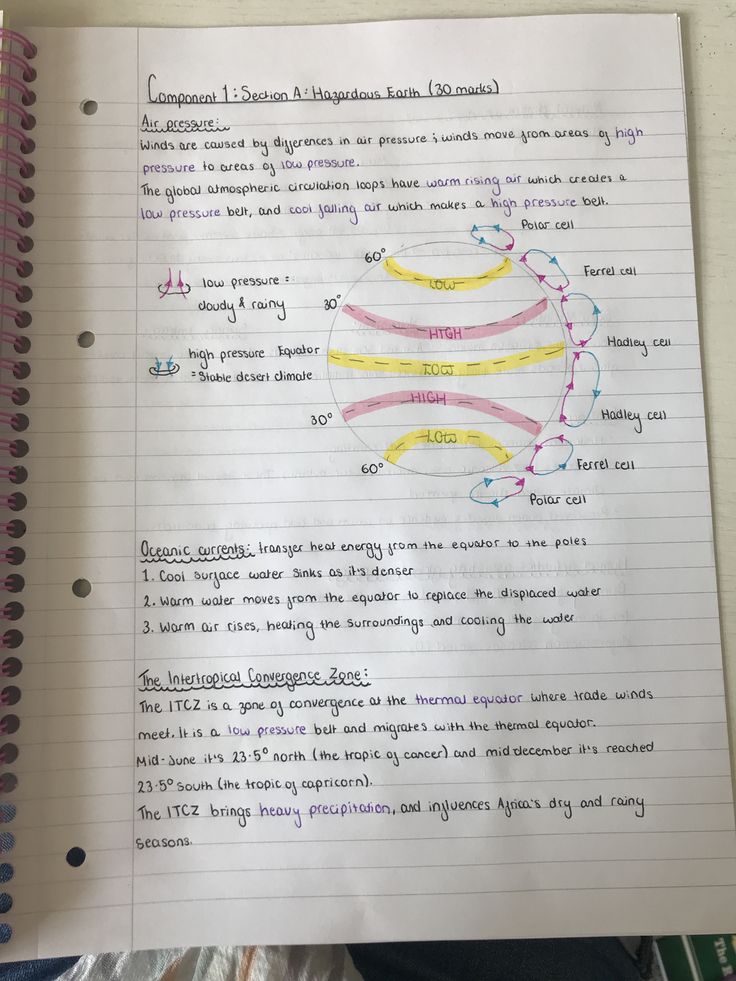 Component 1: Section A: Hazardous Earth (30 marks)
Air pressure:
Winds are caused by differences in air pressure; winds move from areas of high
pressure to areas of low pressure.
The global atmospheric circulation loops have warm rising air which creates a
low pressure belt, and cool falling air which makes a high pressure belt.
Polar cell
60°
LOW
Ferrel cell
low pressure =
cloudy & rainy
30°
HIGH
Hadley cell
high pressure
= Stable desert climate
Equator
LOW
HIGH
30°
Hadley cell
LOW
60°
Ferrel cell
Polar cell
Oceanic currents: transfer heat energy from the equator to the poles
1. Cool surface water sinks as it's denser
2. Warm water moves from the equator to replace the displaced water
3. Warm air rises, heating the surroundings and cooling the water
The Intertropical Convergence Zone:
The ITCZ is a zone of convergence at the thermal equator where trade winds
meet. It is a low pressure belt and migrates with the thermal equator.
Mid-June it's 23.5° north (the tropic of cancer) and mid december it's reached
23.5° South (the tropic of capricorn).
The ITCZ brings heavy precipitation, and influences Africa's dry and rainy
seasons.